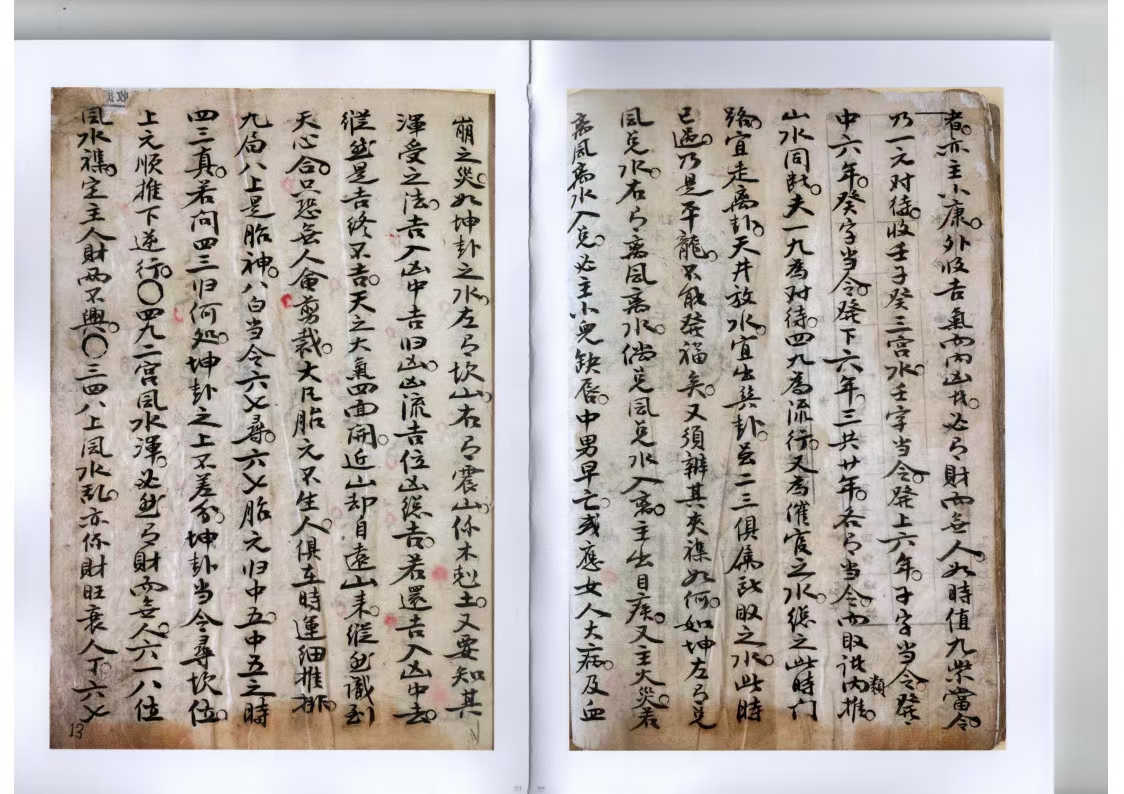 者亦主小康外收吉氣而內凶戓必有財而無人如時值九柴當令
乃一元对待收壬子癸三宫水壬字当令發上六年子字当令發
中六年癸字当令發下六年三共廿年各有当令而取訣内推類
山水同断夫一九為对待四九為流行又為催官之水總之此時门
路宜走离卦天井放水宜出巽卦至二三俱属所取之水此時
已過乃是平龍不能發福矣又須辨其夾襍如何如坤左有兑
風兑水右有离風离水倘兑風兑水入离主出目疾又主火災若
离風离水入兑必主小兒缺唇中男早亡或應女人大病及血
崩之災如坤卦之水左有坎山右有震山係木剋土又要知其
渾受之法吉入凶中吉旧凶凶流吉位凶總吉若還吉入凶中去
縱然是吉终不吉天之大氣四面開近山却自遠山来縱然識到
天心合只恐無人會剪裁大凡胎元不生人俱在時運細推排
九局八上是胎神八白当令六乂尋六乂胎元归中五中五之時
四三真若问四三归何処坤卦之上不差分坤卦当令尋坎位
上元順推下逆行〇四九二宫風水渾必然有財而無人六一八位
風水襍定主人財两不興〇三四八上風水乱亦係財旺衰人丁六乂
13